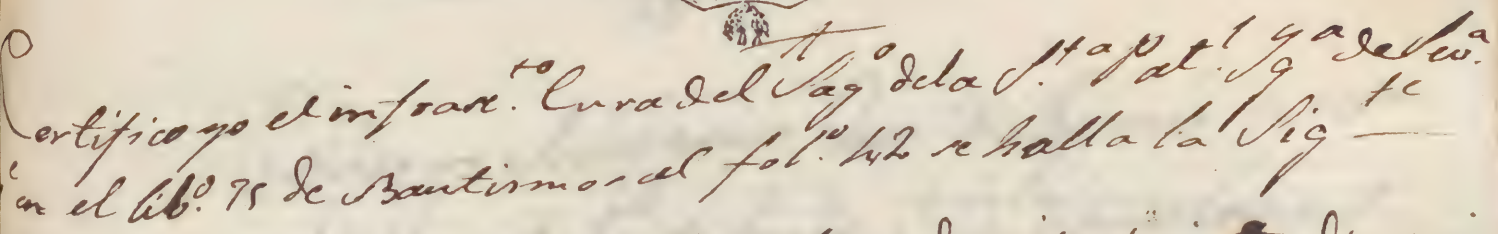 Certifico yo el infrasc.to Cura del Sag.o dela S.ta Pat.l Yg.a de Sev.a
en el lib.o 75 de Bautismos al fol.o 42 se halla la Sig.te